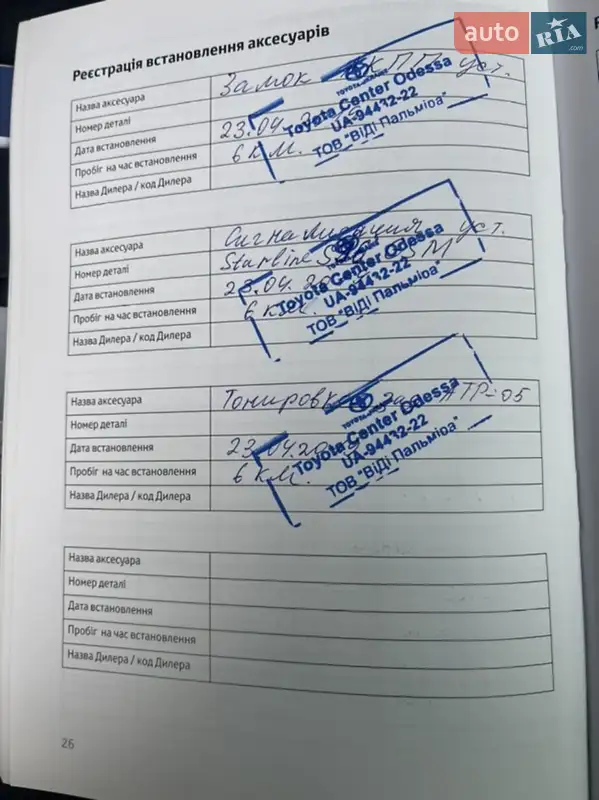 auto RIA .com
Реєстрація встановлення аксесуарів
Назва аксесуара Замок КПП уст.
Номер деталі
Дата встановлення 23.04.
Пробіг на час встановлення 6 км.
Назва Дилера / код Дилера
Toyota Center Odessa
UA-94412-22
ТОВ "ВІДІ Пальміра"
Назва аксесуара Сигнализация уст.
Номер деталі Starline
Дата встановлення 23.04.
Пробіг на час встановлення 6 км.
Назва Дилера / код Дилера
Toyota Center Odessa
UA-94412-22
ТОВ "ВІДІ Пальміра"
Назва аксесуара Тонировка АТР-05
Номер деталі
Дата встановлення 23.04.20
Пробіг на час встановлення 6 км.
Назва Дилера / код Дилера
Toyota Center Odessa
UA-94412-22
ТОВ "ВІДІ Пальміра"
Назва аксесуара
Номер деталі
Дата встановлення
Пробіг на час встановлення
Назва Дилера / код Дилера
26